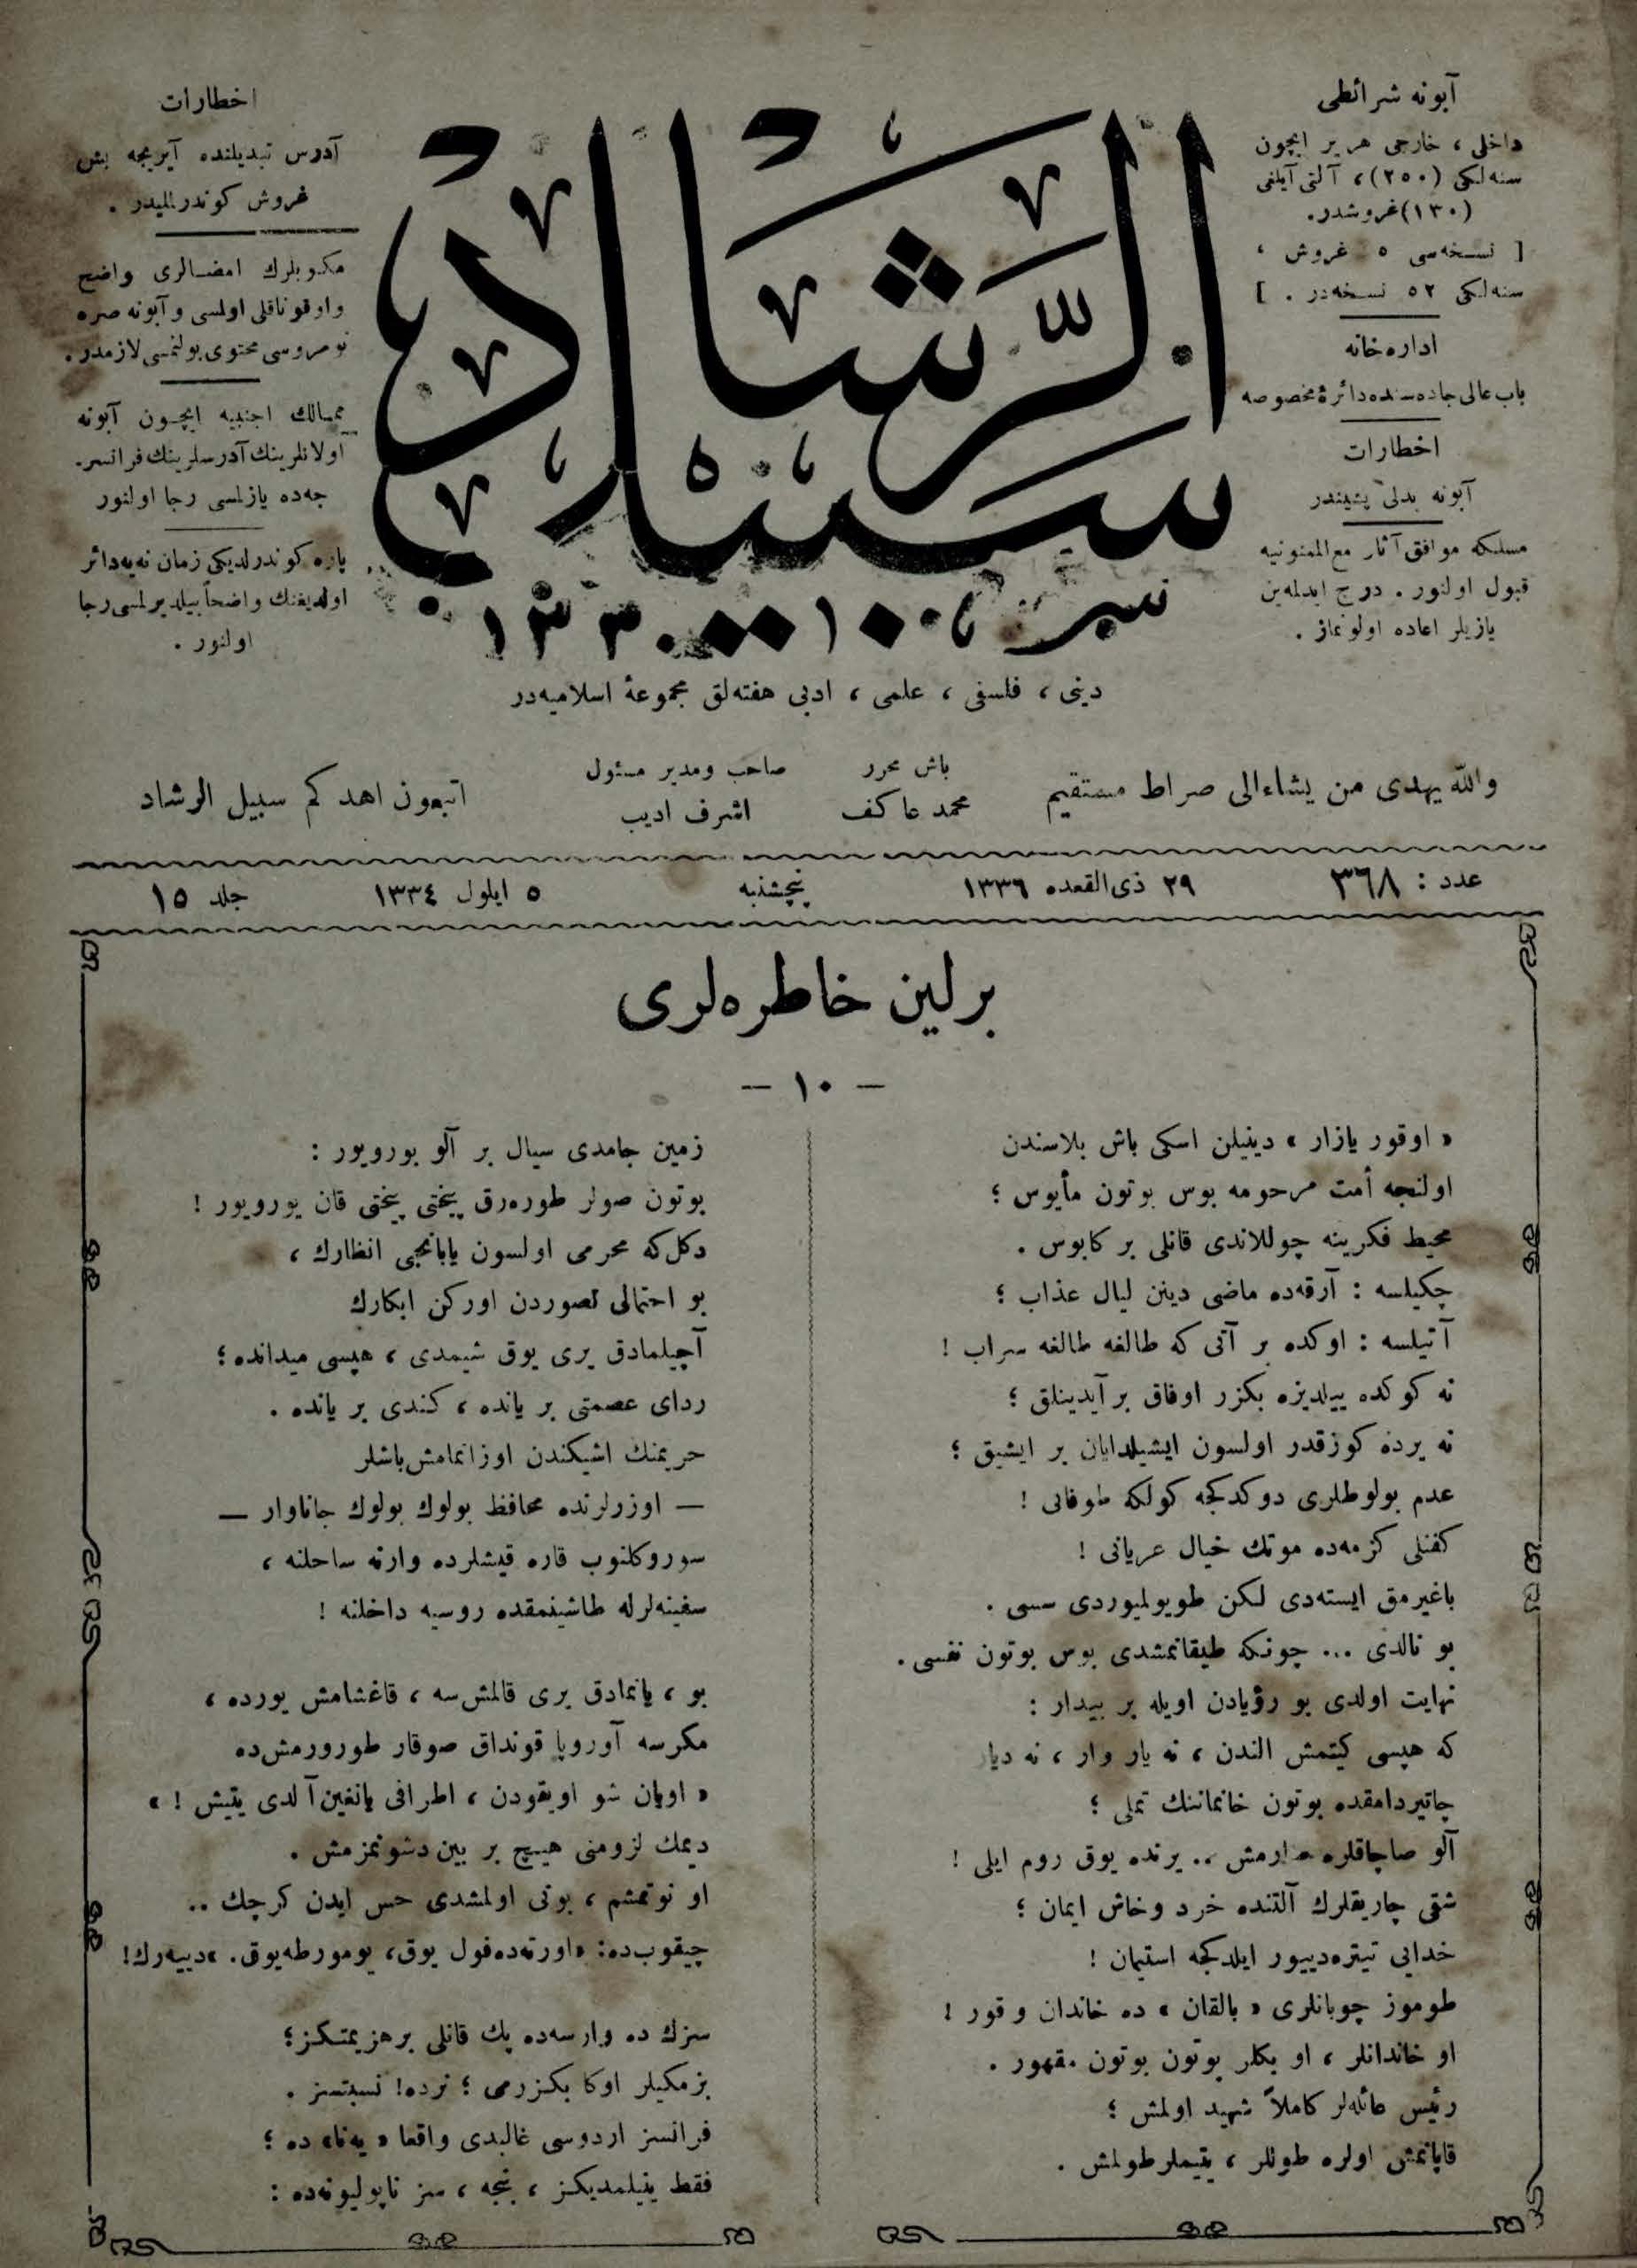 آبونه شرائطی
داخلی ، خارجی هر یر ایچون
سنه‌لكی (٢٥٠) ، آلتی آیلغی
(١٣٠) غروشدر.
[ نسخه‌سی ٥ غروش ،
سنه‌لكی ٥٢ نسخه‌در . ]
اداره‌خانه
باب عالی جاده‌سنده دائرهٔ مخصوصه
اخطارات
آبونه بدلی پشیندر
مسلكه موافق آثار مع‌الممنونیه
قبول اولنور . درج ایدلمه‌ین
یازیلر اعاده اولونماز .
اخطارات
آدرس تبدیلنده آیریجه بش
غروش كوندرلملیدر .
مكتوبلرك امضالری واضح
واوقوناقلی اولمسی و آبونه صره
نومروسی محتوی بولنمسی لازمدر .
ممالك اجنبیه ایچون آبونه
اولانلرینك آدرسلرینك فرانسز-
جه‌ده یازلمسی رجا اولنور
پاره كوندرلدیكی زمان نه‌یه دائر
اولدیغنك واضحاً بیلدیرلمسی رجا
اولنور .
سبيل الرشاد
دینی ، فلسفی ، علمی ، ادبی هفته‌لق مجموعهٔ اسلامیه‌در
والله يهدى من يشاء الى صراط مستقيم
باش محرر
محمد عاكف
صاحب ومدیر مسئول
اشرف ادیب
اتبعون اهدكم سبيل الرشاد
عدد : ٣٦٨
٢٩ ذی‌القعده ١٣٣٦
پنچشنبه
٥ ایلول ١٣٣٤
جلد ١٥
برلین خاطره‌لری
— ١٠ —
« اوقور یازار » دینیلن اسكی باش بلاسندن
اولنجه أمت مرحومه بوس بوتون مأیوس ؛
محیط فكرینه چوللاندی قانلی بر كابوس .
چكیلسه : آرقه‌ده ماضی دینن لیال عذاب ؛
آتیلسه : اوكده بر آتی كه طالغه طالغه سراب !
نه كوكده ییلدیزه بكزر اوفاق بر آیدینلق ؛
نه یرده كوز قدر اولسون ایشیلدایان بر ایشیق ؛
عدم بولوطلری دوكدكجه كولكه طوفانی !
كفنلی كزمه‌ده موتك خیال عریانی !
باغیرمق ایسته‌دی لكن طویولمیوردی سسی .
بو نالدی ... چونكه طیقانمشدی بوس بوتون نفسی .
نهایت اولدی بو رؤیادن اویله بر بیدار :
كه هپسی كیتمش الندن ، نه یار وار ، نه دیار
چاتیردامقده بوتون خانماننك تملی ؛
آلو صاچاقلره صارمش .. یرنده یوق روم ایلی !
شقی چاریقلرك آلتنده خرد وخاش ایمان ؛
خدایی تیتره‌دییور ایلدكجه استیمان !
طوموز چوبانلری « بالقان » ده خاندان و قور !
او خاندانلر ، او بكلر بوتون بوتون مقهور .
رئیس عائله‌لر كاملاً شهید اولمش ؛
قاپانمش اولره طوللر ، یتیملر طولمش .
زمین جامدی سیال بر آلو بورویور :
بوتون صولر طوره‌رق پیختی پیختی قان یورویور !
دكل‌كه محرمی اولسون یابانجی انظارك ،
بو احتمالی تصوردن اوركن ابكارك
آچیلمادق یری یوق شیمدی ، هپسی میدانده ؛
ردای عصمتی بر یانده ، كندی بر یانده .
حریمنك اشیكندن اوزانمامش باشلر
— اوزرلرنده محافظ بولوك بولوك جاناوار —
سوروكلنوب قاره قیشلرده وارنه ساحلنه ،
سفینه‌لرله طاشینمقده روسیه داخلنه !
بو ، یانمادق یری قالمش‌سه ، قاغشامش یورده ،
مكرسه آوروپا قونداق صوقار طورورمش‌ده
« اویان شو اویقودن ، اطرافی یانغین آلدی یتیش ! »
دیمك لزومنی هیچ بر بین دشونمزمش .
او نوتمشم ، بوتی اولمشدی حس ایدن كرچك ..
چیقوب‌ده : «اورته‌ده فول یوق، یومورطه یوق.» دییه‌رك!
سزك ده وارسه‌ده پك قانلی بر هزیمتكز ؛
بزمكیلر اوكا بكزرمی ؛ نرده ! نسبتسز .
فرانسز اردوسی غالبدی واقعا « یه‌نا » ده ؛
فقط ینیلمدیكز ، بنجه ، سز ناپولیونه‌ده :